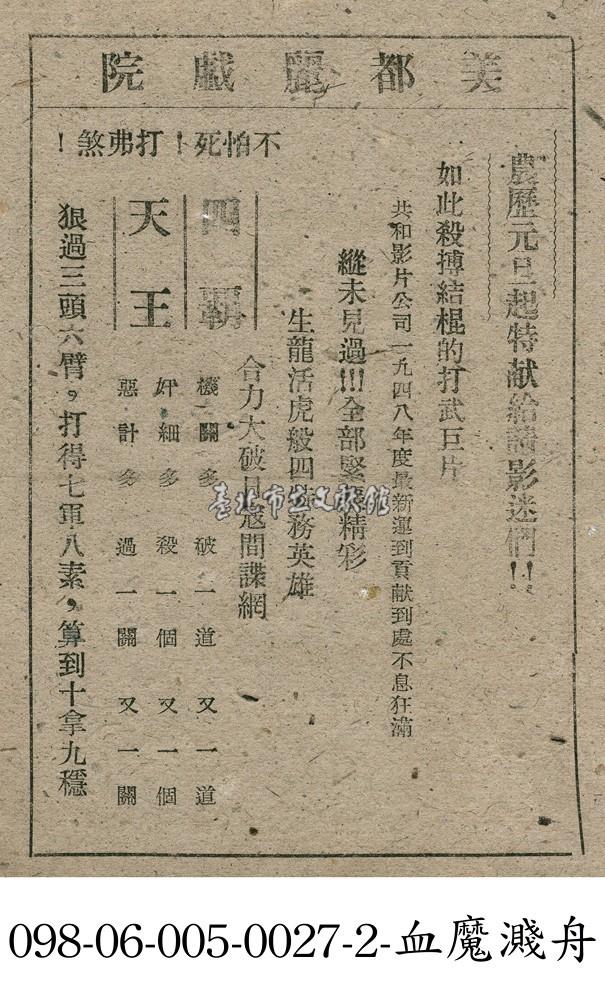 美都麗戲院
農歷元旦起特献給諸影迷們!!
如此殺搏結棍的打武巨片
共和影片公司一九四八年度最新運到貢献到處不息狂滿
縱未見過!!!全部緊張精彩
生龍活虎般四特務英雄
合力大破日寇間諜網
不怕死！打弗煞！
四覇
天王
機關多 破一道又一道
奸細多 殺一個又一個
惡計多 過一關又一關
狠過三頭六臂，打得七軍八素，算到十拿九穩
臺北市立文献館
098-06-005-0027-2-血魔濺舟